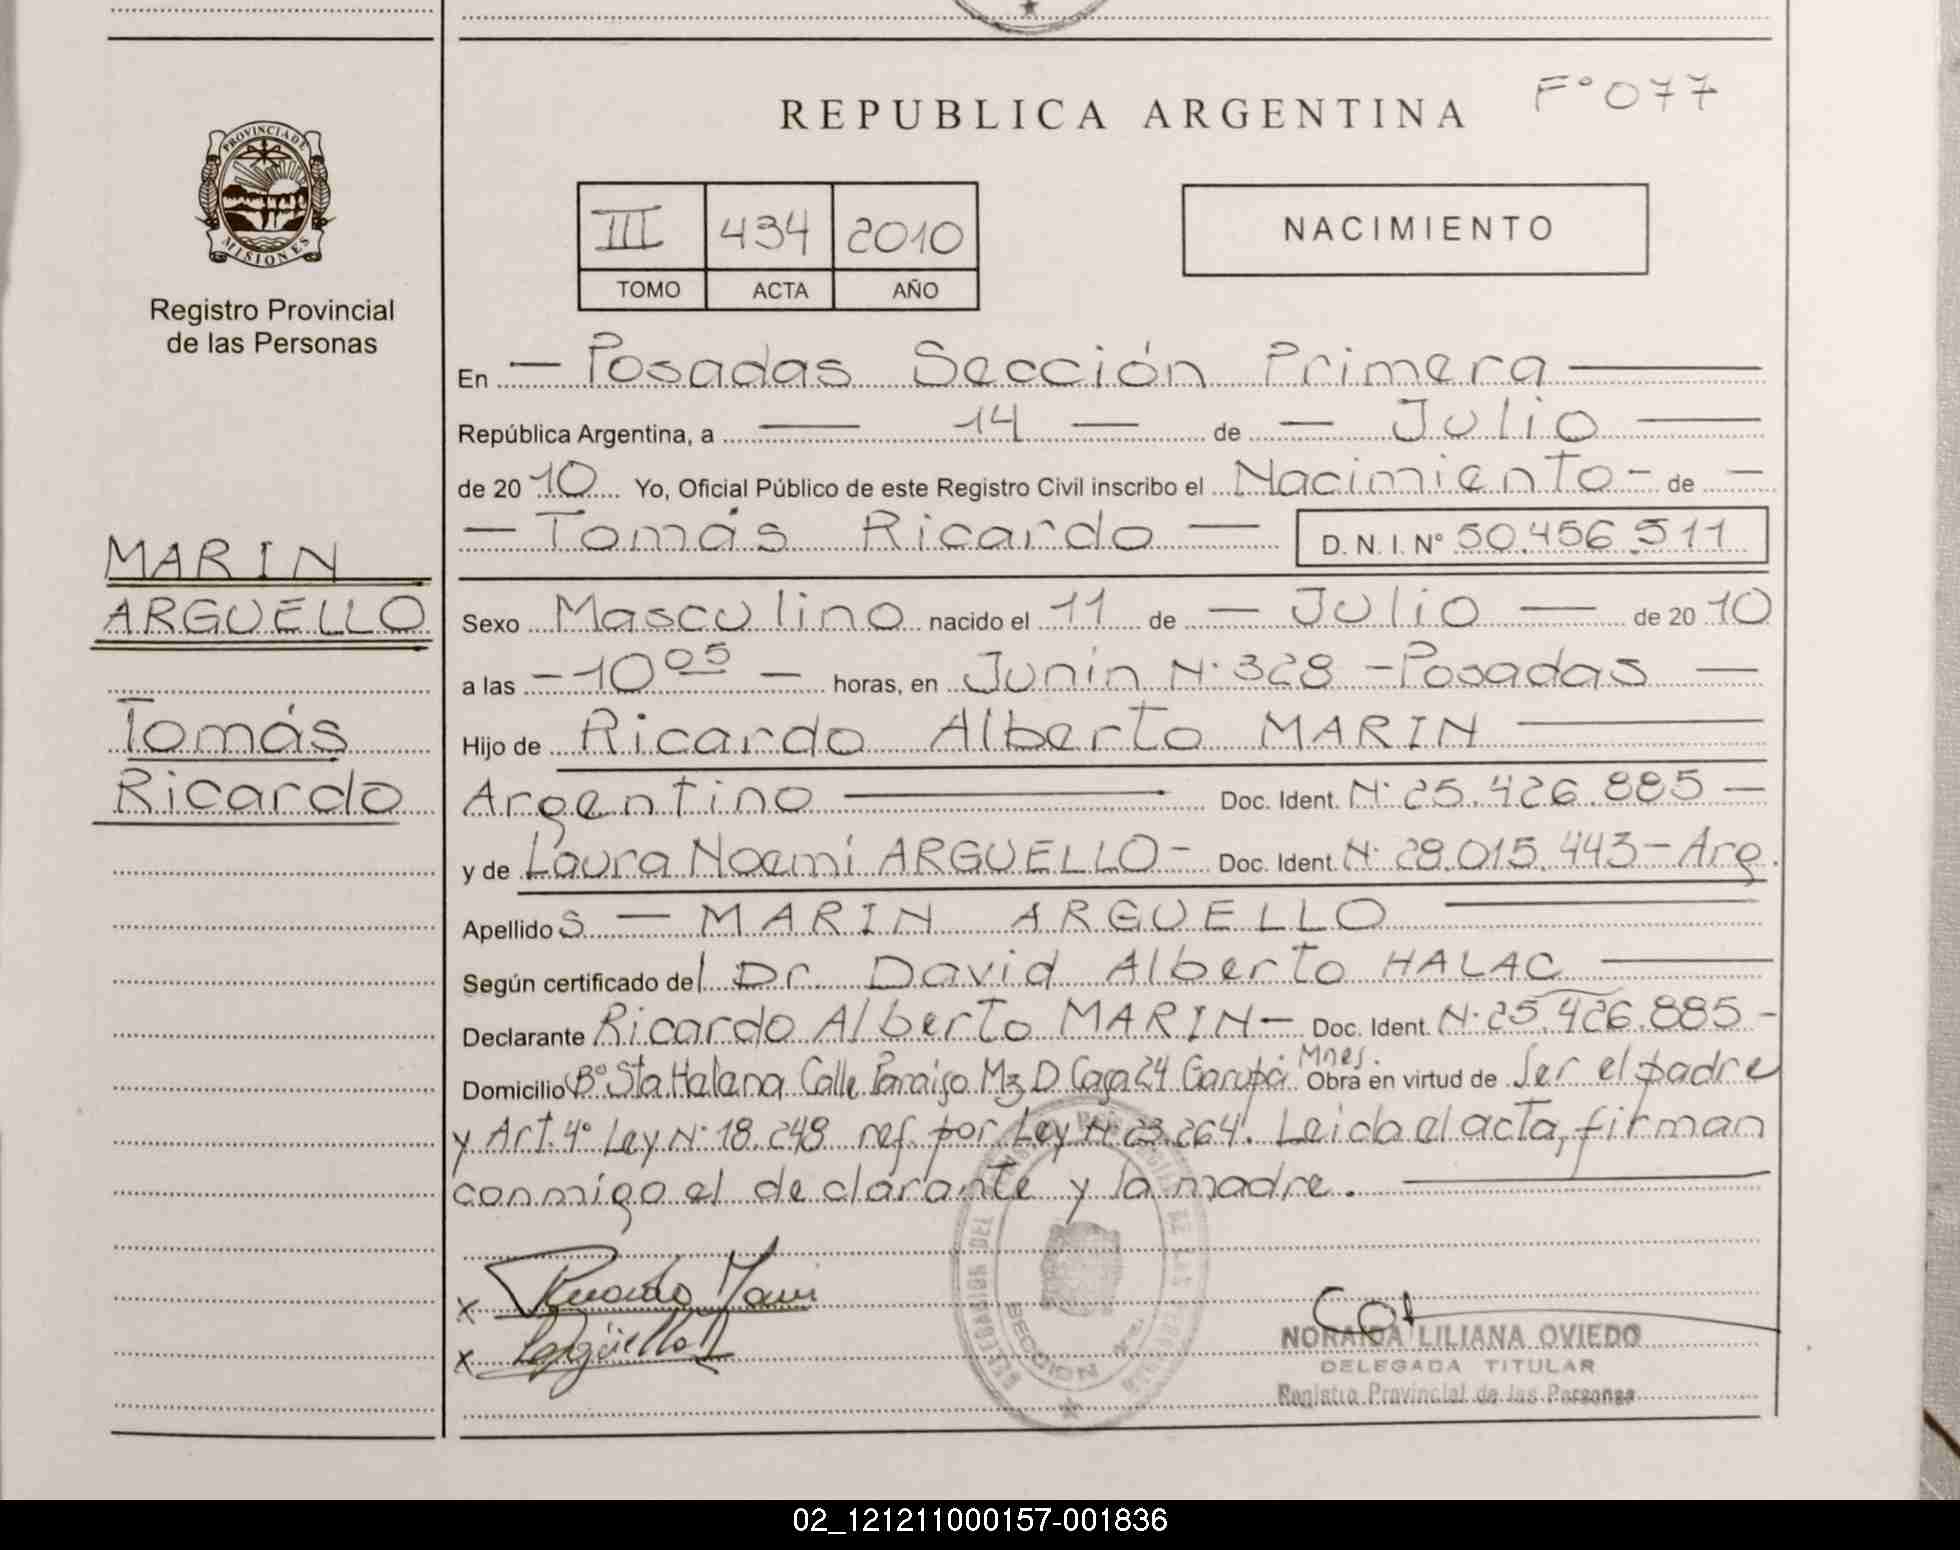 F° 077
REPUBLICA ARGENTINA
PROVINCIA DE
MISIONES
Registro Provincial
de las Personas
III 434 2010
TOMO ACTA AÑO
NACIMIENTO
En — Posadas Sección Primera —
República Argentina, a — 14 — de — Julio —
de 20 10 Yo, Oficial Público de este Registro Civil inscribo el Nacimiento - de —
— Tomás Ricardo — D.N.I. N° 50.456.511
MARIN
ARGUELLO
Tomás
Ricardo
Sexo Masculino nacido el 11 de — Julio — de 20 10
a las - 10 05 — horas, en Junin N° 328 - Posadas —
Hijo de Ricardo Alberto MARIN —
Argentino — Doc. Ident. N° 25.426.885 —
y de Laura Noemi ARGUELLO - Doc. Ident. N° 28.015.443 - Arg.
Apellido s — MARIN ARGUELLO —
Según certificado de l Dr. David Alberto HALAC —
Declarante Ricardo Alberto MARIN - Doc. Ident. N° 25.426.885 -
Domicilio B° Sta Helena Calle Paraiso Mz D Casa 24 Garupá Mnes. Obra en virtud de Ser el padre
y Art. 4° Ley N° 18.248 ref. por Ley N° 23.264. Leida el acta, firman
conmigo el declarante y la madre. —
x Ricardo Marin
x LArgüello
SECCION
NORAIDA LILIANA OVIEDO
DELEGADA TITULAR
Registro Provincial de las Personas
02_121211000157-001836